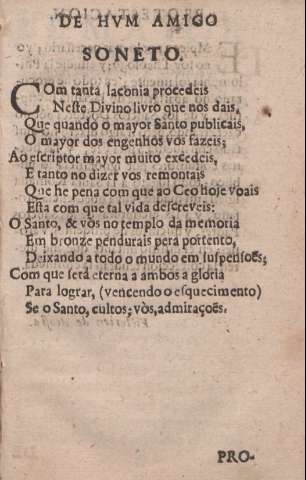 DE HVM AMIGO
SONETO.
COm tanta laconia procedeis
Neste Divino livro que nos dais,
Que quando o mayor Santo publicais,
O mayor dos engenhos vos fazeis;
Ao escriptor mayor muito excedeis,
E tanto no dizer vos remontais
Que he pena com que ao Ceo hoje voais
Esta com que tal vida descreveis:
O Santo, & vòs no templo da memoria
Em bronze pendurais pera portento,
Deixando a todo o mundo em suspensoẽs;
Com que serâ eterna a ambos a gloria
Para lograr, (vencendo o esquecimento)
Se o Santo, cultos; vòs, admiraçoẽs.
PRO-